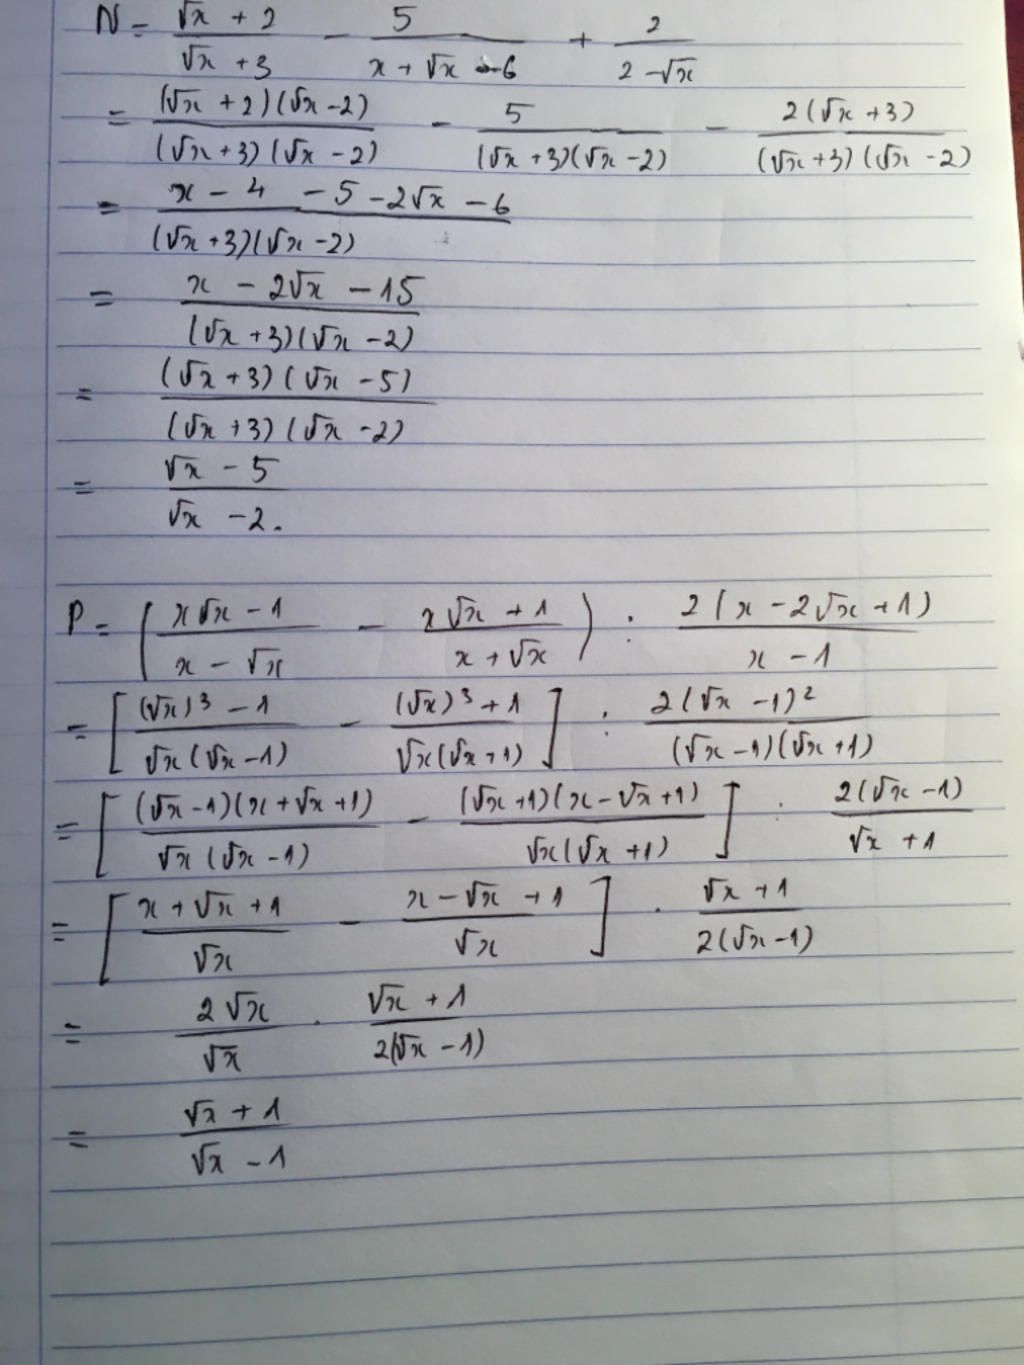 N = (√x + 2)/(√x + 3) - 5/(x + √x - 6) + 2/(2 - √x)
= (√x + 2)(√x - 2)/(√x + 3)(√x - 2) - 5/(√x + 3)(√x - 2) - 2(√x + 3)/(√x + 3)(√x - 2)
= (x - 4 - 5 - 2√x - 6)/(√x + 3)(√x - 2)
= (x - 2√x - 15)/(√x + 3)(√x - 2)
= (√x + 3)(√x - 5)/(√x + 3)(√x - 2)
= (√x - 5)/(√x - 2).
P = ((x√x - 1)/(x - √x) - (x√x + 1)/(x + √x)) : 2(x - 2√x + 1)/(x - 1)
= [((√x)³ - 1)/√x(√x - 1) - ((√x)³ + 1)/√x(√x + 1)] : 2(√x - 1)²/(√x - 1)(√x + 1)
= [(√x - 1)(x + √x + 1)/√x(√x - 1) - (√x + 1)(x - √x + 1)/√x(√x + 1)] : 2(√x - 1)/(√x + 1)
= [(x + √x + 1)/√x - (x - √x + 1)/√x] . (√x + 1)/2(√x - 1)
= 2√x/√x . (√x + 1)/2(√x - 1)
= (√x + 1)/(√x - 1)